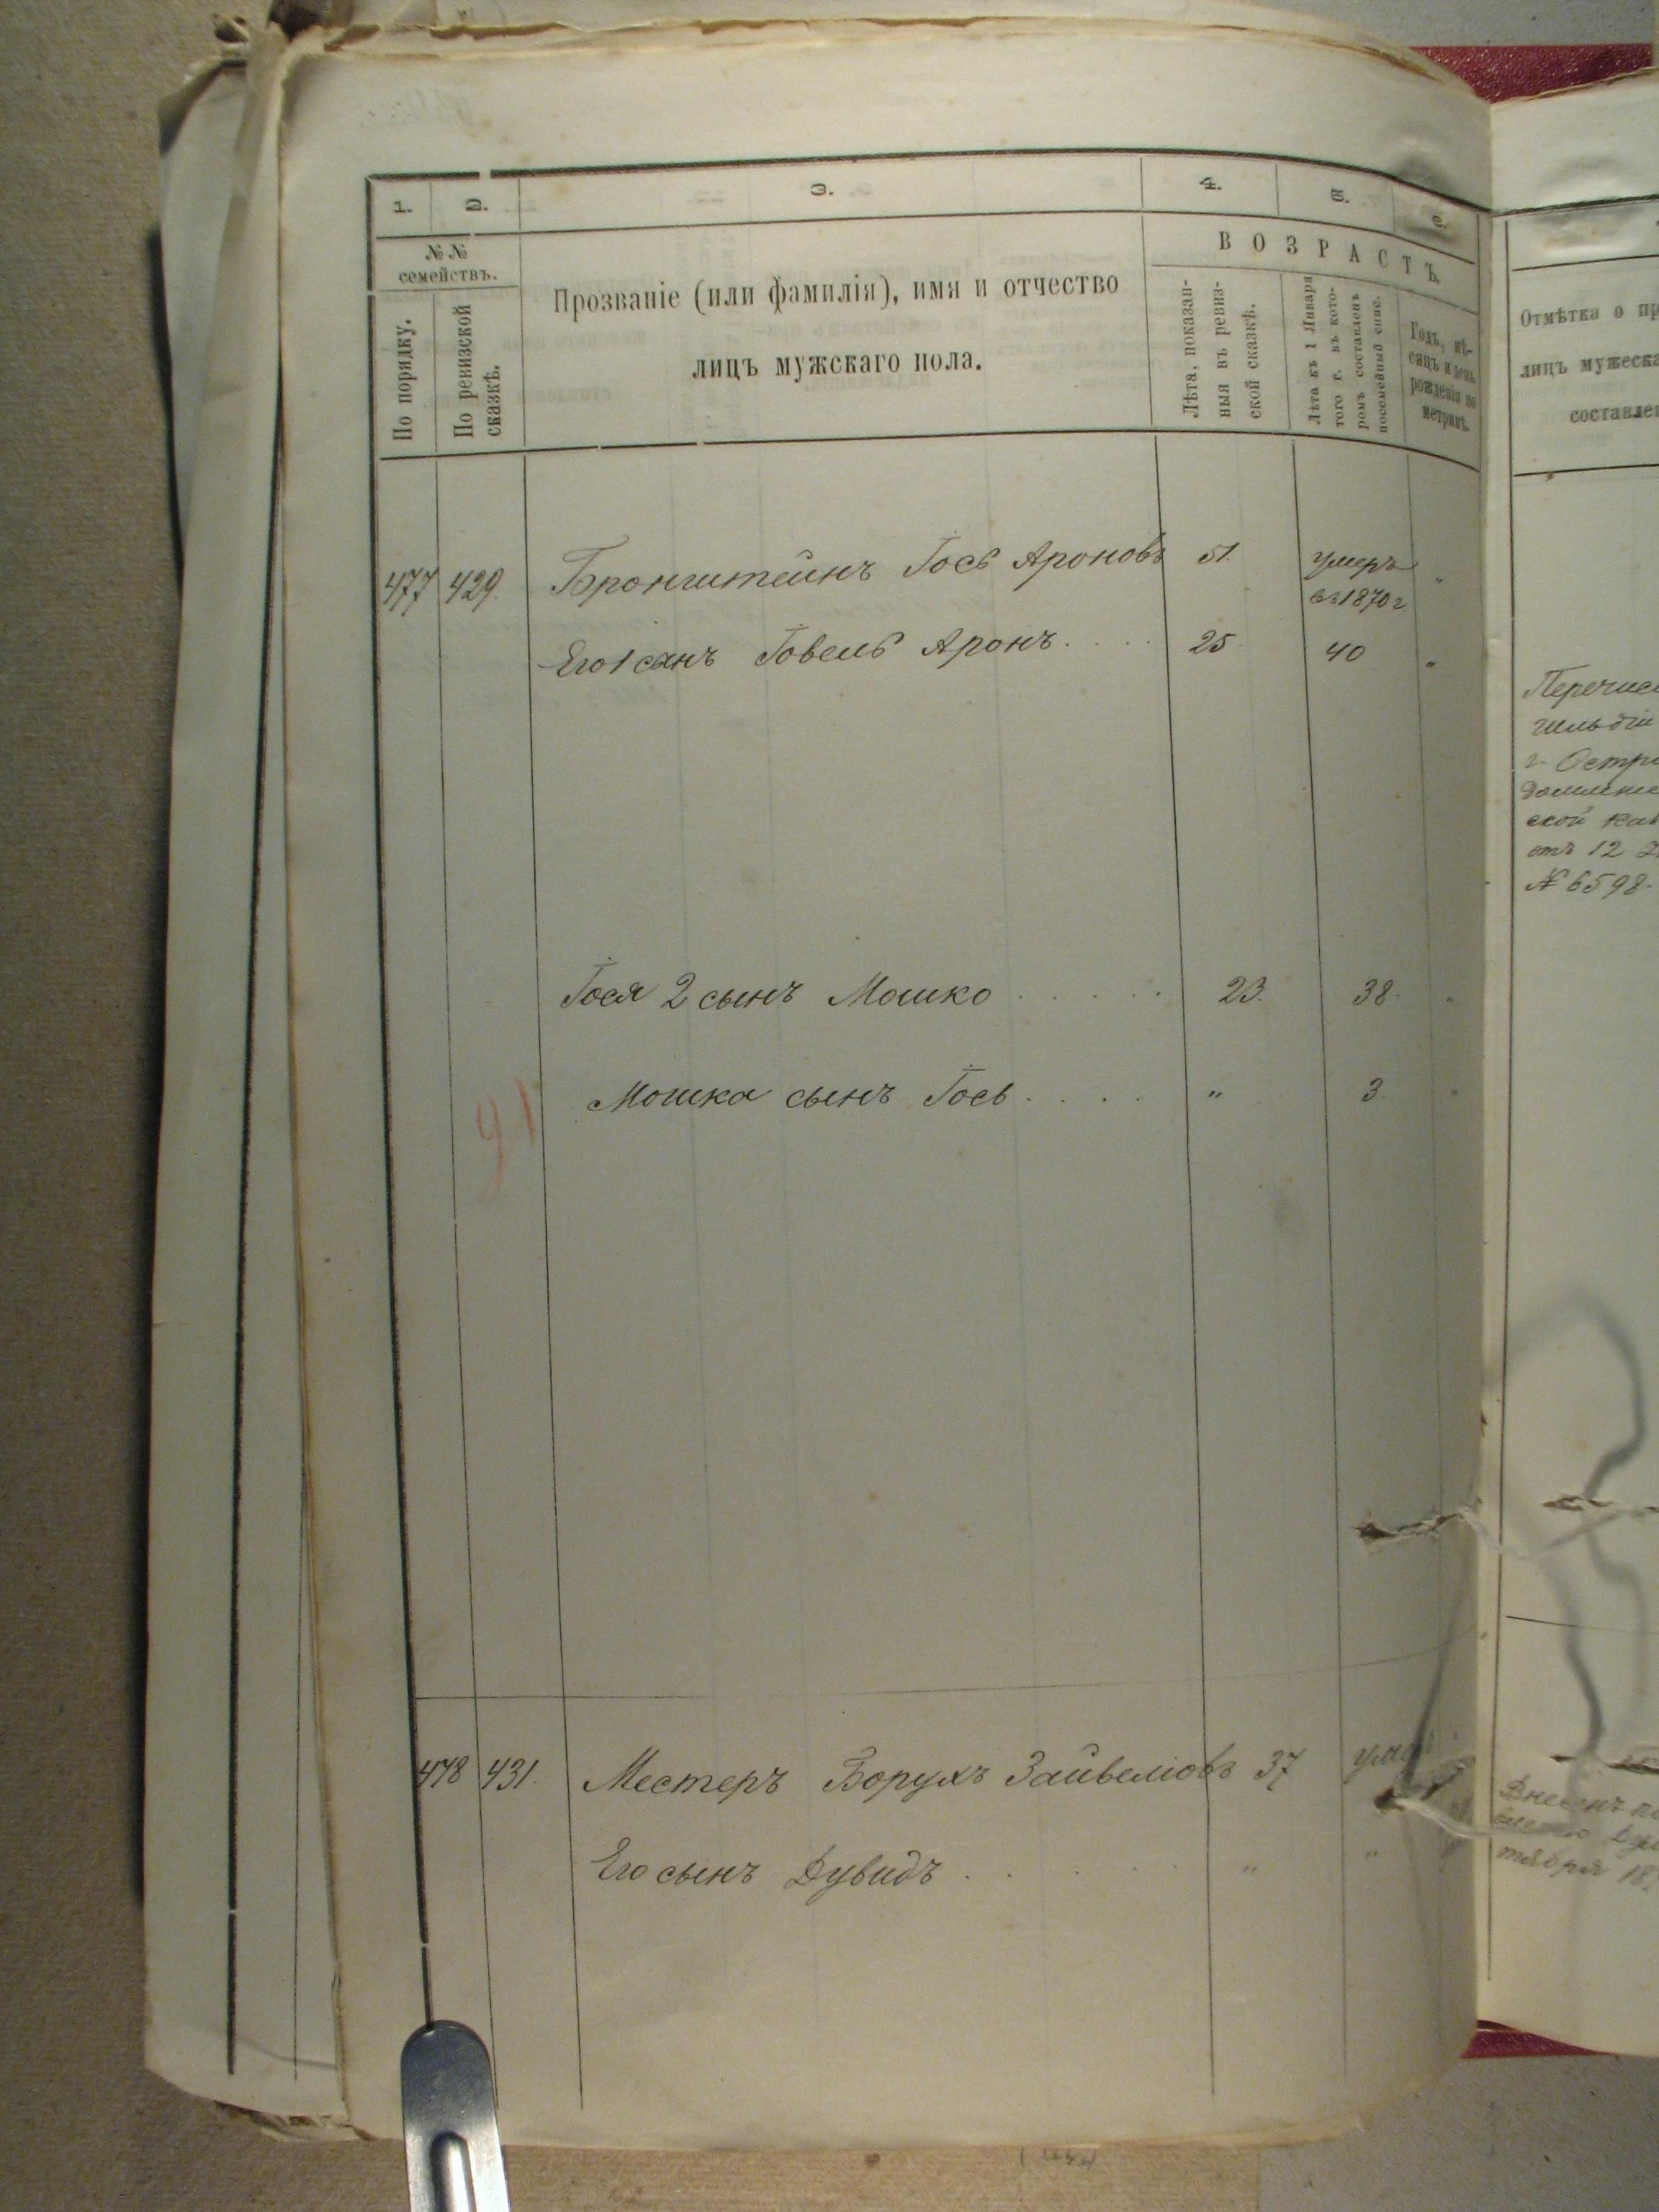 1. 2. 3. 4. 5. 6.
№№ семействъ.
По порядку.
По ревизской сказкѣ.
Прозваніе (или фамилія), имя и отчество
лицъ мужскаго пола.
ВОЗРАСТЪ.
Лѣта, показан-
ныя въ ревиз-
ской сказкѣ.
Лѣта къ 1 Января
того г. въ кото-
ромъ составленъ
посемейный спис.
Годъ, мѣ-
сяцъ и день
рожденія по
метрикѣ.
477 429. Бронштейнъ Іось Ароновъ 51. умеръ
въ 1870 г
Его 1 сынъ Іовель Аронъ . . . . 25 40 "
Іося 2 сынъ Мошко . . . . . 23. 38.
91
Мошка сынъ Іось . . . . " 3.
478 431. Местеръ Борухъ Зайвеліовъ 37
Его сынъ Дувидъ . . . . " "
Отмѣтка о
лицъ
г. Остр
ской
отъ 12
№ 6598.
Внесенъ